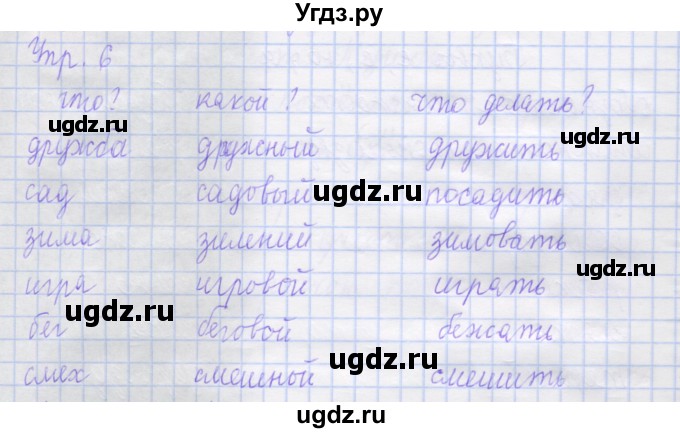 Угдз.ру
Упр. 6
что? какой? что делать?
ugdz.ru ugdz.ru
дружба дружный дружить
ugdz.ru
сад садовый посадить
зима зимний зимовать
ugdz.ru
игра игровой играть
ugdz.ru
бег беговой бежать
ugdz.ru
смех смешной смешить
ugdz.ru